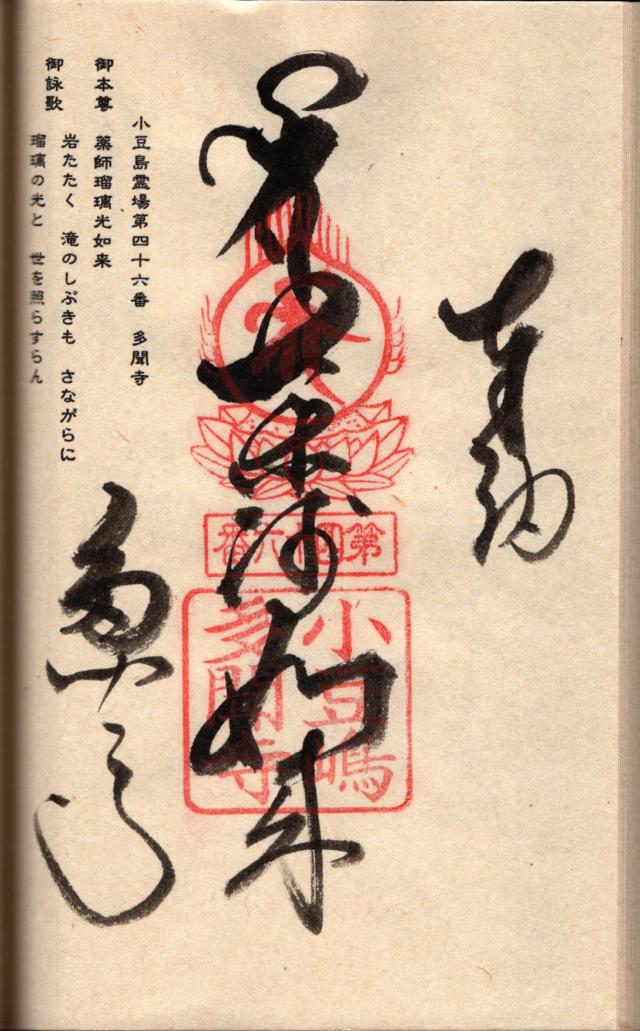 奉納
如来
第四十六番
小豆嶋
多聞寺
小豆島霊場第四十六番 多聞寺
御本尊 薬師瑠璃光如来
御詠歌 岩たたく 滝のしぶきも さながらに
瑠璃の光と 世を照らすらん